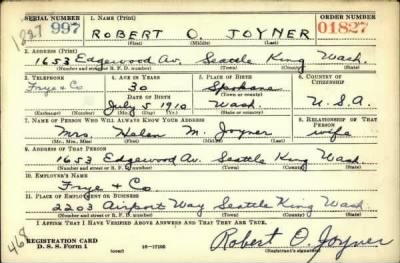 SERIAL NUMBER 1. NAME (Print) ORDER NUMBER
1827 997 ROBERT O. JOYNER 01827
(First) (Middle) (Last)
2. ADDRESS (Print)
1653 Edgewood Av. Seattle King Wash.
(Number and street or R. F. D. number) (Town) (County) (State)
3. TELEPHONE 4. AGE IN YEARS 5. PLACE OF BIRTH 6. COUNTRY OF CITIZENSHIP
Frye & Co 30 Spokane
DATE OF BIRTH (Town or county)
July 5 1910 Wash. U.S.A.
(Exchange) (Number) (Mo.) (Day) (Yr.) (State or country)
7. NAME OF PERSON WHO WILL ALWAYS KNOW YOUR ADDRESS 8. RELATIONSHIP OF THAT PERSON
Mrs. Helen M. Joyner wife
(Mr., Mrs., Miss) (First) (Middle) (Last)
9. ADDRESS OF THAT PERSON
1653 Edgewood Av. Seattle King Wash.
(Number and street or R. F. D. number) (Town) (County) (State)
10. EMPLOYER'S NAME
Frye & Co.
11. PLACE OF EMPLOYMENT OR BUSINESS
2203 Airport Way Seattle King Wash.
(Number and street or R. F. D. number) (Town) (County) (State)
I AFFIRM THAT I HAVE VERIFIED ABOVE ANSWERS AND THAT THEY ARE TRUE.
468 REGISTRATION CARD
D. S. S. Form 1 (over) 16-17105 Robert O. Joyner
(Registrant's signature)